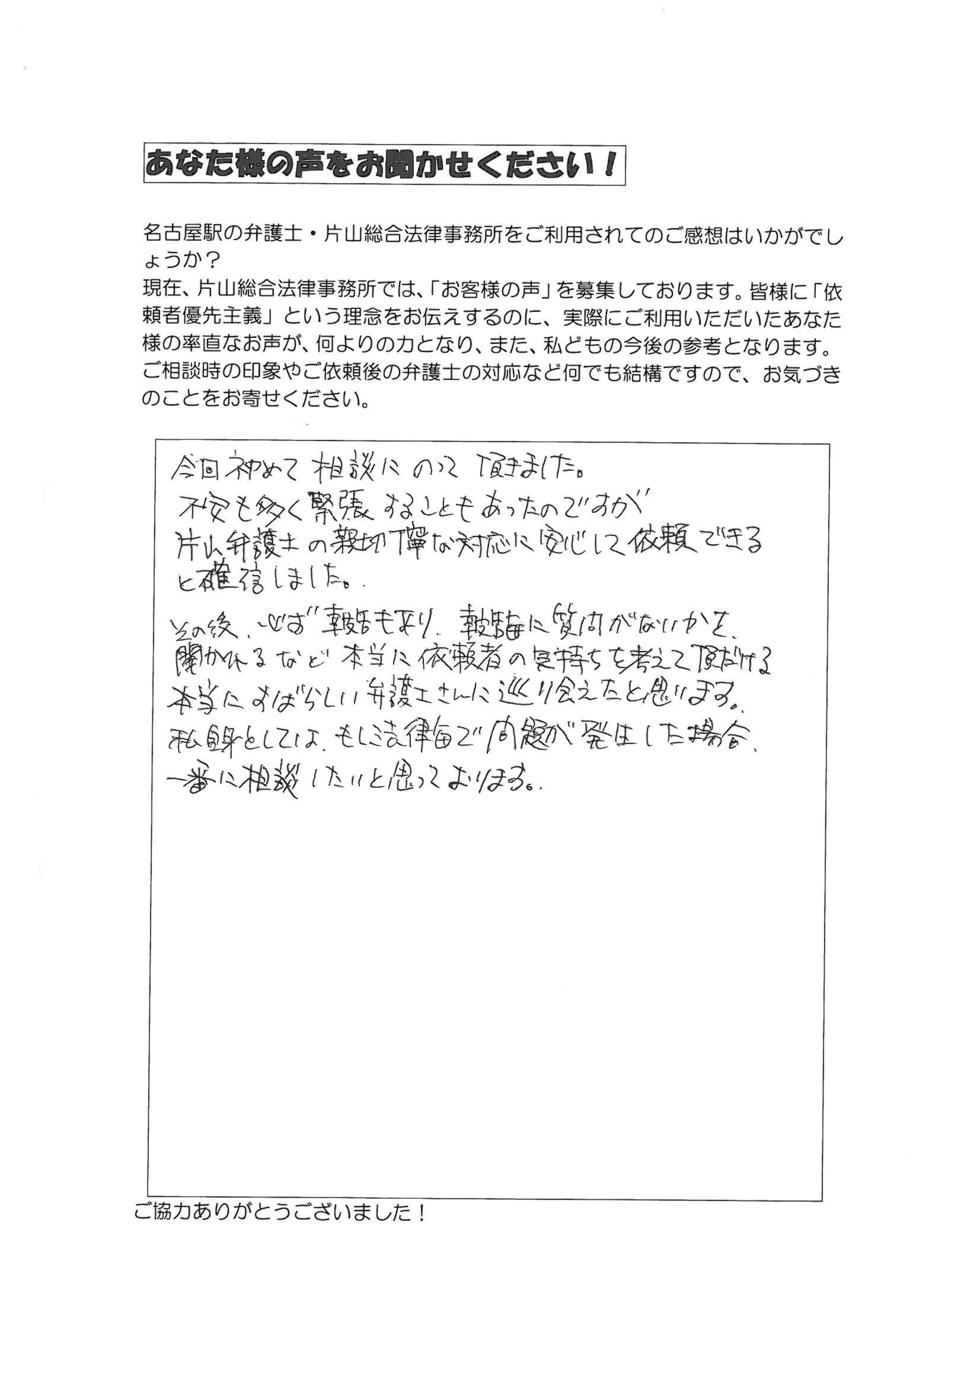 あなた様の声をお聞かせください！
名古屋駅の弁護士・片山総合法律事務所をご利用されてのご感想はいかがでし
ょうか？
現在、片山総合法律事務所では、「お客様の声」を募集しております。皆様に「依
頼者優先主義」という理念をお伝えするのに、実際にご利用いただいたあなた
様の率直なお声が、何よりの力となり、また、私どもの今後の参考となります。
ご相談時の印象やご依頼後の弁護士の対応など何でも結構ですので、お気づき
のことをお寄せください。
今回初めて相談にのって頂きました。
不安も多く緊張することもあったのですが
片山弁護士の親切丁寧な対応に安心して依頼できる
と確信しました。
その後、必ず報告も来り、報告毎に質問がないかを、
聞かれるなど本当に依頼者の気持ちを考えて頂だける
本当にすばらしい弁護士さんに巡り会えたと思います。
私自身としては、もし法律毎で問題が発生した場合、
一番に相談したいと思っております。
ご協力ありがとうございました！